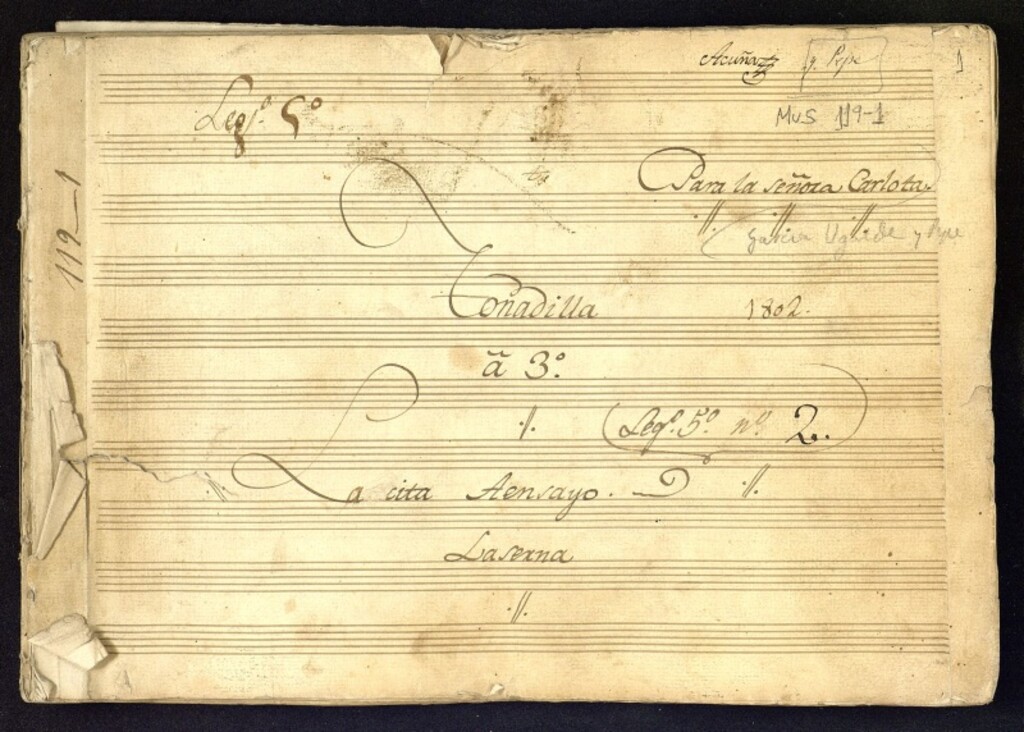 Acuña y Pepe
1
Legº. 5º
MUS 119-1
Para la señora Carlota.
119-1
Garcia Ugalde y Pepe
Tonadilla 1802.
â 3º
Legº. 5º nº 2.
La cita Aensayo.
Laserna